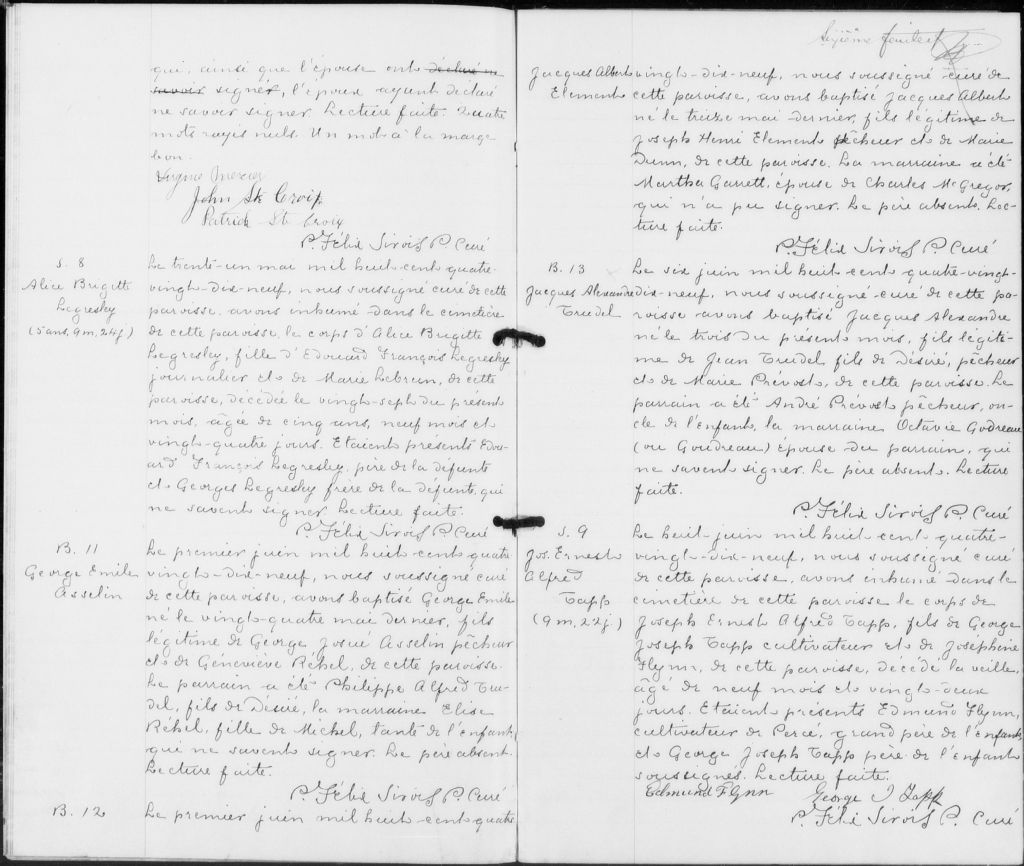 qui, ainsi que l'épouse ont déclaré ne
savoir signer, l'époux ayant déclaré
ne savoir signer. Lecture faite. Quatre
mots rayés nuls. Un mot à la marge
bon.
Virginie Mercier
John St Croix
Patrick St Croix
P. Félix Sirois P. Curé
S. 8
Alice Brigitte
Legresley
(5 ans, 9 m, 24 j)
Le trente-un mai mil huit-cent quatre-
vingt-dix-neuf, nous soussigné curé de cette
paroisse, avons inhumé dans le cimetière
de cette paroisse, le corps d'Alice Brigitte
Legresley, fille d'Edouard François Legresley
journalier et de Marie Lebrun, de cette
paroisse, décédée le vingt-sept du présent
mois, âgée de cinq ans, neuf mois et
vingt-quatre jours. Etaient présents Edou-
ard François Legresley, père de la défunte
et Georges Legresley frère de la défunte, qui
ne savent signer. Lecture faite.
P. Félix Sirois P. Curé
B. 11
George Emile
Asselin
Le premier juin mil huit-cent quatre
vingt-dix-neuf, nous soussigné curé
de cette paroisse, avons baptisé George Emile
né le vingt-quatre mai dernier, fils
légitime de George Josué Asselin pêcheur
et de Geneviève Réhel, de cette paroisse.
Le parrain a été Philippe Alfred Tru-
del, fils de Désiré, la marraine Elise
Réhel, fille de Michel, tante de l'enfant,
qui ne savent signer. Le père absent.
Lecture faite.
P. Félix Sirois P. Curé
B. 12
Le premier juin mil huit-cent quatre
feuillet
Jacques Albert
Element
vingt-dix-neuf, nous soussigné curé de
cette paroisse, avons baptisé Jacques Albert
né le treize mai dernier, fils légitime de
Joseph Henri Element pêcheur et de Marie
Dunn, de cette paroisse. La marraine a été
Martha Garrett, épouse de Charles McGregor,
qui n'a pu signer. Le père absent. Lec-
ture faite.
P. Félix Sirois P. Curé
B. 13
Jacques Alexandre
Trudel
Le six juin mil huit-cent quatre-vingt-
dix-neuf, nous soussigné curé de cette pa-
roisse avons baptisé Jacques Alexandre
né le trois du présent mois, fils légiti-
me de Jean Trudel fils de Désiré, pêcheur
et de Marie Prévost, de cette paroisse. Le
parrain a été André Prévost pêcheur, on-
cle de l'enfant, la marraine Octavie Godreau
(ou Goudreau) épouse du parrain, qui
ne savent signer. Le père absent. Lecture
faite.
P. Félix Sirois P. Curé
S. 9
Jos. Ernest
Alfred
Tapp
(9 m, 22 j.)
Le huit juin mil huit-cent quatre-
vingt-dix-neuf, nous soussigné curé
de cette paroisse, avons inhumé dans le
cimetière de cette paroisse le corps de
Joseph Ernest Alfred Tapp, fils de George
Joseph Tapp cultivateur et de Joséphine
Flynn, de cette paroisse, décédé la veille,
âgé de neuf mois et vingt-deux
jours. Etaient présents Edmund Flynn,
cultivateur de Percé, grand père de l'enfant,
et George Joseph Tapp père de l'enfant
soussignés. Lecture faite.
Edmund Flynn
George J Tapp
P. Félix Sirois P. Curé